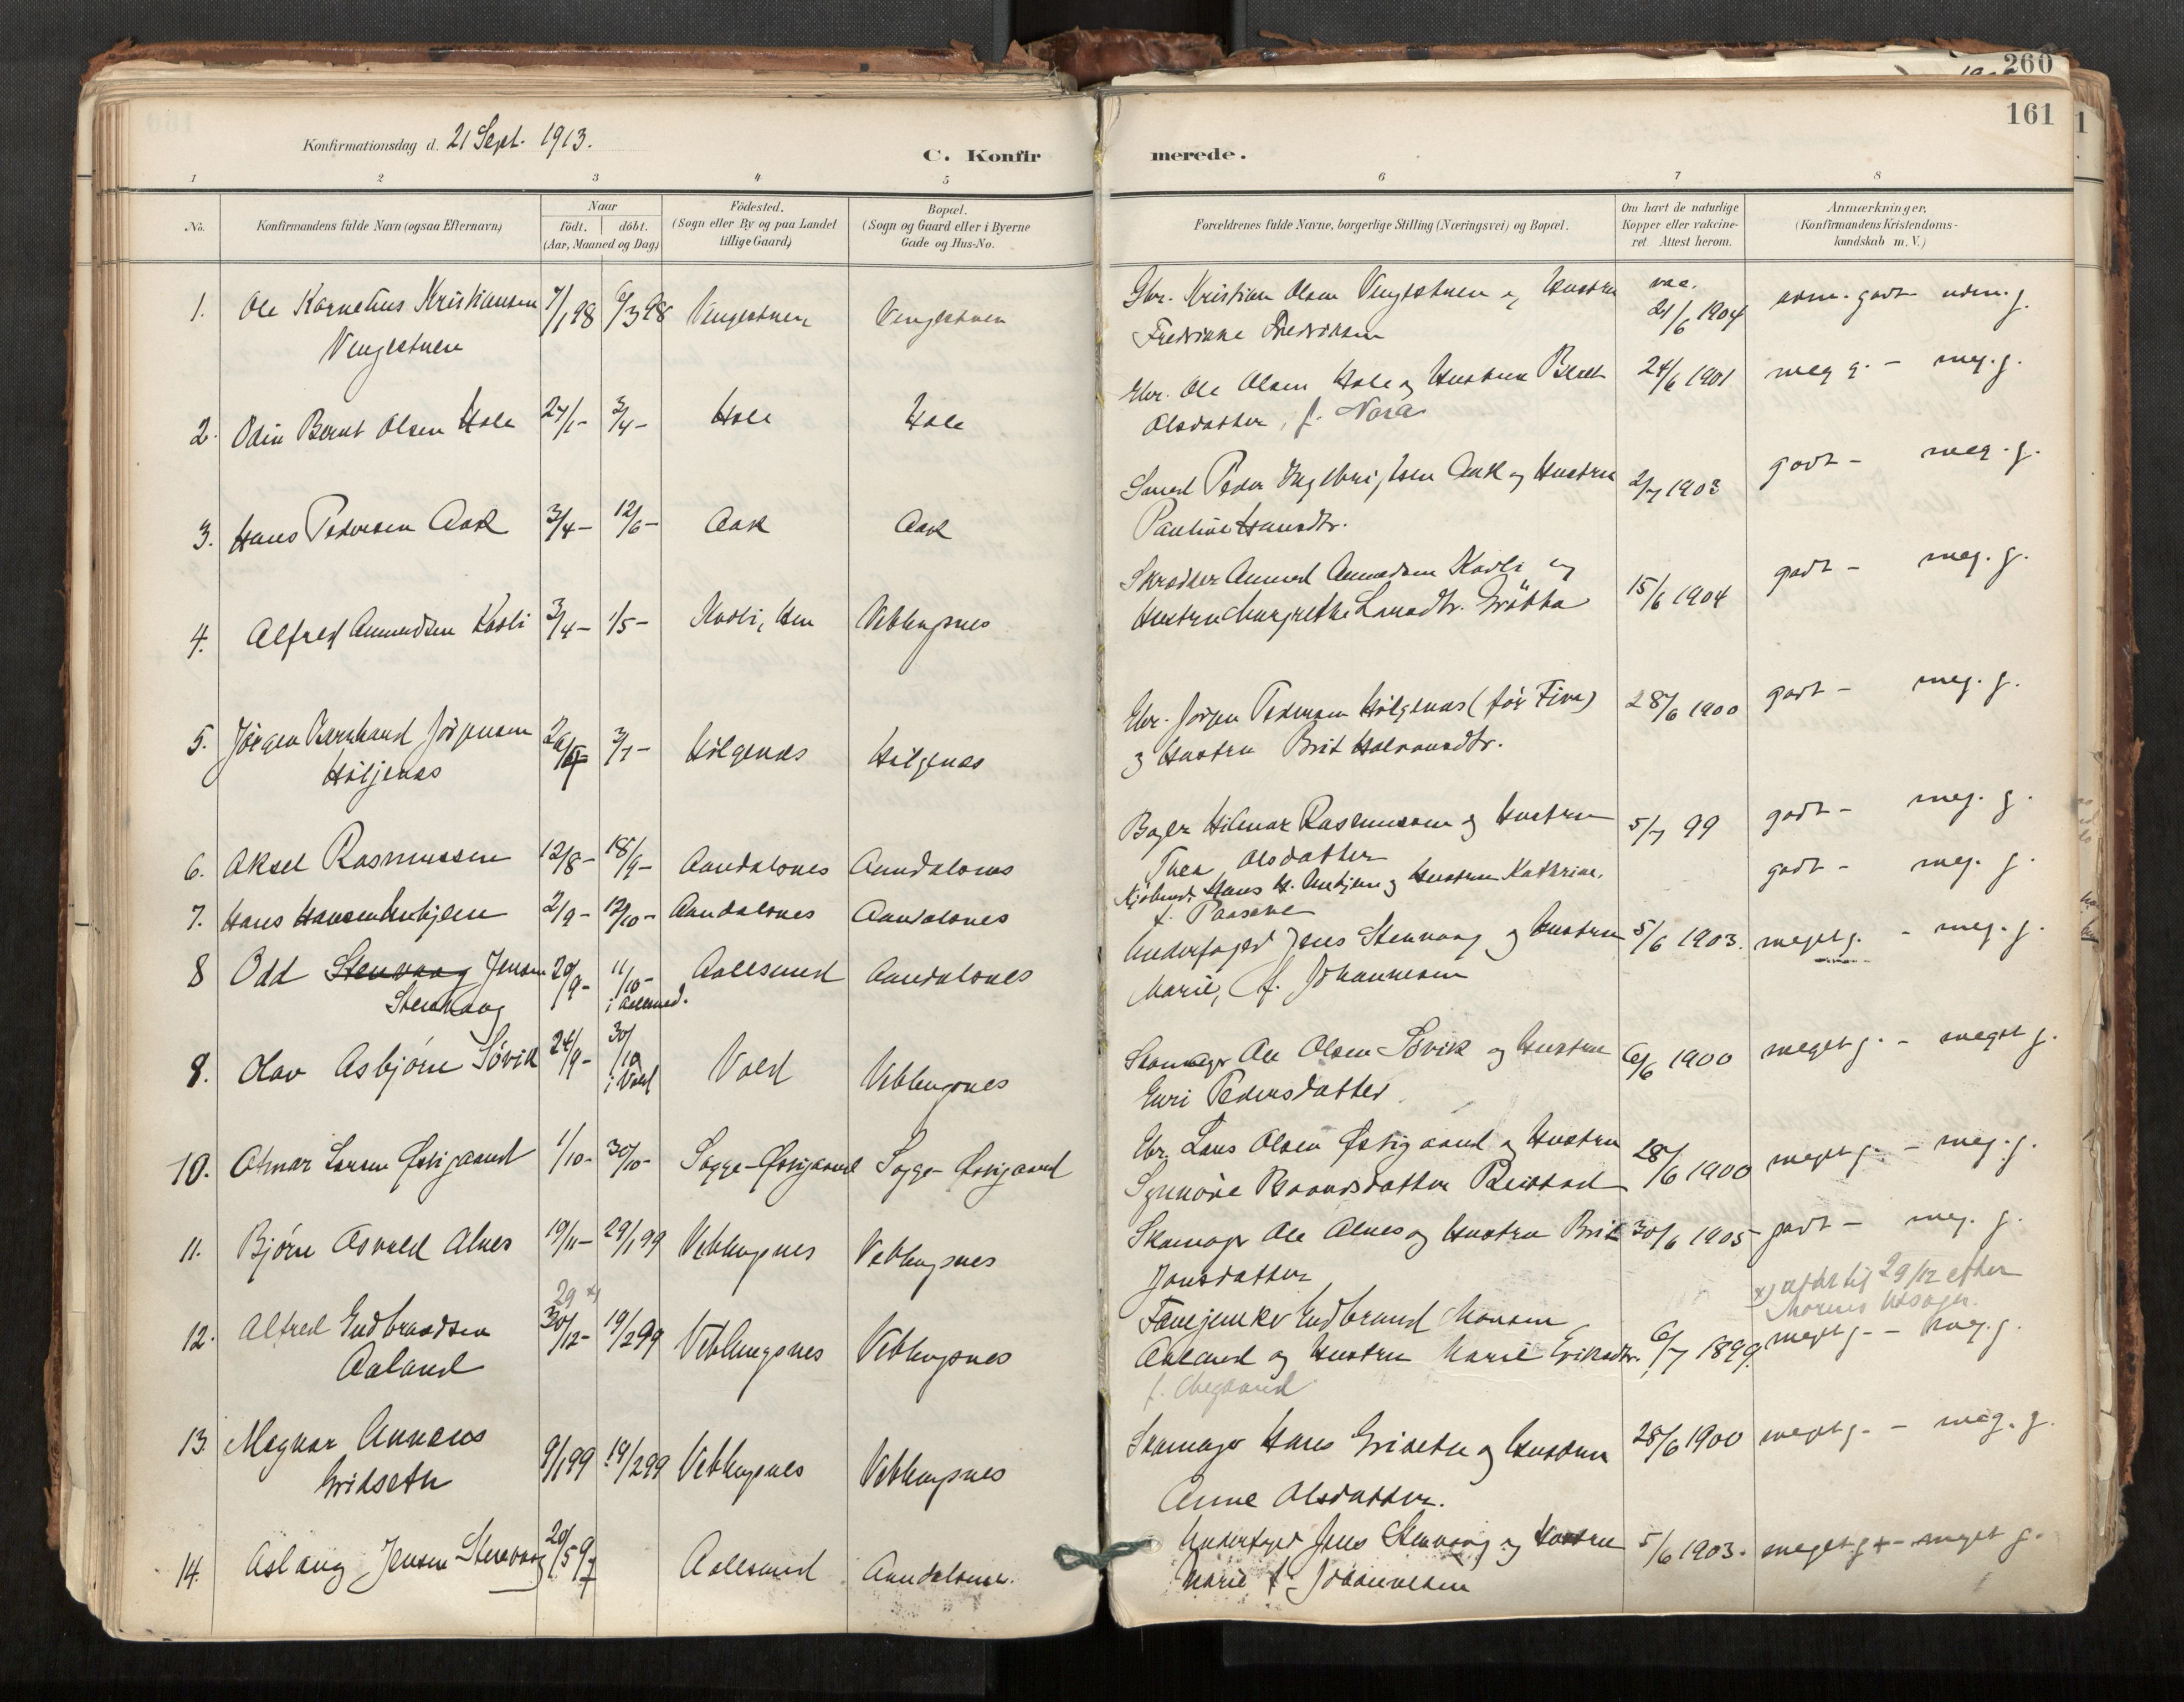 260
161
Konfirmationsdag d. 21 Sept. 1913.
C. Konfirmerede.
1 2 3 4 5 6 7 8
No.
Konfirmandens fulde Navn (ogsaa Efternavn)
Naar
födt. döbt.
(Aar, Maaned og Dag)
Födested.
(Sogn eller By og paa Landet
tillige Gaard)
Bopæl.
(Sogn og Gaard eller i Byerne
Gade og Hus-No.
Forældrenes fulde Navne, borgerlige Stilling (Næringsvei) og Bopæl.
Om havt de naturlige
Kopper eller vakcine-
ret. Attest herom.
Anmærkninger.
(Konfirmandens Kristendoms-
kundskab m. V.)
1. Ole Kornelius Kristiansen 7/1 98 6/3 98 Vengestuen Vengestuen
Vengestuen
Gbr. Kristian Olsen Vengestuen og Hustru vac. 21/6 1904
Fredrikke Fredriksen
2. Odin Bernt Olsen Hole 27/1- 3/4- Hole Hole
Gbr. Ole Olsen Hole og Hustru Beret 24/6 1901 meg g. - meg. g.
Olsdatter, f. Nora
3. Hans Pedersen Aak 3/4- 12/6- Aak Aak
Smed Peder Ingebrigtsen Aak og Hustru 2/7 1903 godt - meg. g.
Pauline Hansdtr.
4. Alfred Amundsen Kavli 3/4- 1/5- Kavli, Hen Veblungsnes
Skrædder Amund Amundsen Kavli og 15/6 1904 godt - meg. g.
Hustru Margrethe Larsdtr. Grøtta
5. Jörgen Bernhard Jörgensen 3/7- Hölgenes Hölgenes
Höljenes
Gbr. Jörgen Pedersen Hölgenes (før Fiva) 28/6 1900 godt - meg. g.
og Hustru Brit Halvorsdtr.
6. Aksel Rasmussen 12/8- 18/9- Aandalsnes Aandalsnes
Bager Hilmar Rasmussen og Hustru 5/7 99 godt - meg. g.
Thea Olsdatter
7. Hans Hansen Unhjem 2/9- 12/10- Aandalsnes Aandalsnes
Kjøbmd. Hans H. Unhjem og Hustru Kathrine, godt - meg. g.
f. Paasche
8 Odd Stenvaag Jensen 20/9- 11/10- Aalesund Aandalsnes
Stenvaag i Aalesund.
Underfoged Jens Stenvaag og Hustru 5/6 1903. meget g. - meg. g.
Marie, f. Johannesen
9. Olav Asbjörn Sövik 24/9- 30/10 Vold Veblungsnes
i Vold
Skomager Ole Olsen Sövik og Hustru 6/6 1900 meget g. - meget g.
Guri Pedersdatter
10. Otmar Larsen Östigaard 1/10- 30/10- Sogge-Östigaard Sogge-Östigaard
Gbr. Lars Olsen Östigaard og Hustru 28/6 1900 meget g. - meg. g.
Synnöve Baardsdatter Reistad
11. Björn Osvald Alnes 19/11- 29/1 99 Veblungsnes Veblungsnes
Skomager Ole Alnes og Hustru Brit 30/6 1905 godt - meg. g.
Jonsdatter
29 x)
12. Alfred Gudbrandsen 30/12- 19/2 99 Veblungsnes Veblungsnes
Aaland
x) 29/12 efter
Morens Udsagn.
Fanejunker Gudbrand Monsen
Aaland og Hustru Marie Eriksdtr. 6/7 1899. meget g. - meg. g.
13. Magnar Annæus 9/1 99 19/2 99 Veblungsnes Veblungsnes
Gridseth
Skomager Hans Gridseth og Hustru 28/6 1900 meget g. - meg. g.
Anne Olsdatter.
14. Aslaug Jensen Stenvaag 20/5 97 Aalesund Aandalsnes.
Underfoged Jens Stenvaag og Hustru 5/6 1903. meget g + - meget g.
Marie f. Johannesen